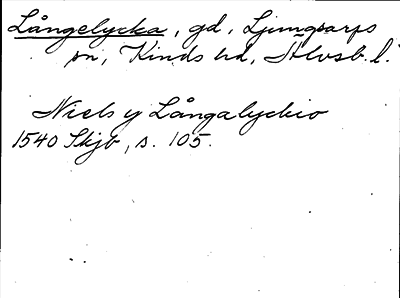 Långelycka, gd, Ljungsarps
sn, Kinds hd, Älvsb. l.
Niels y Långalyckio
1540 Skjb, s. 105.